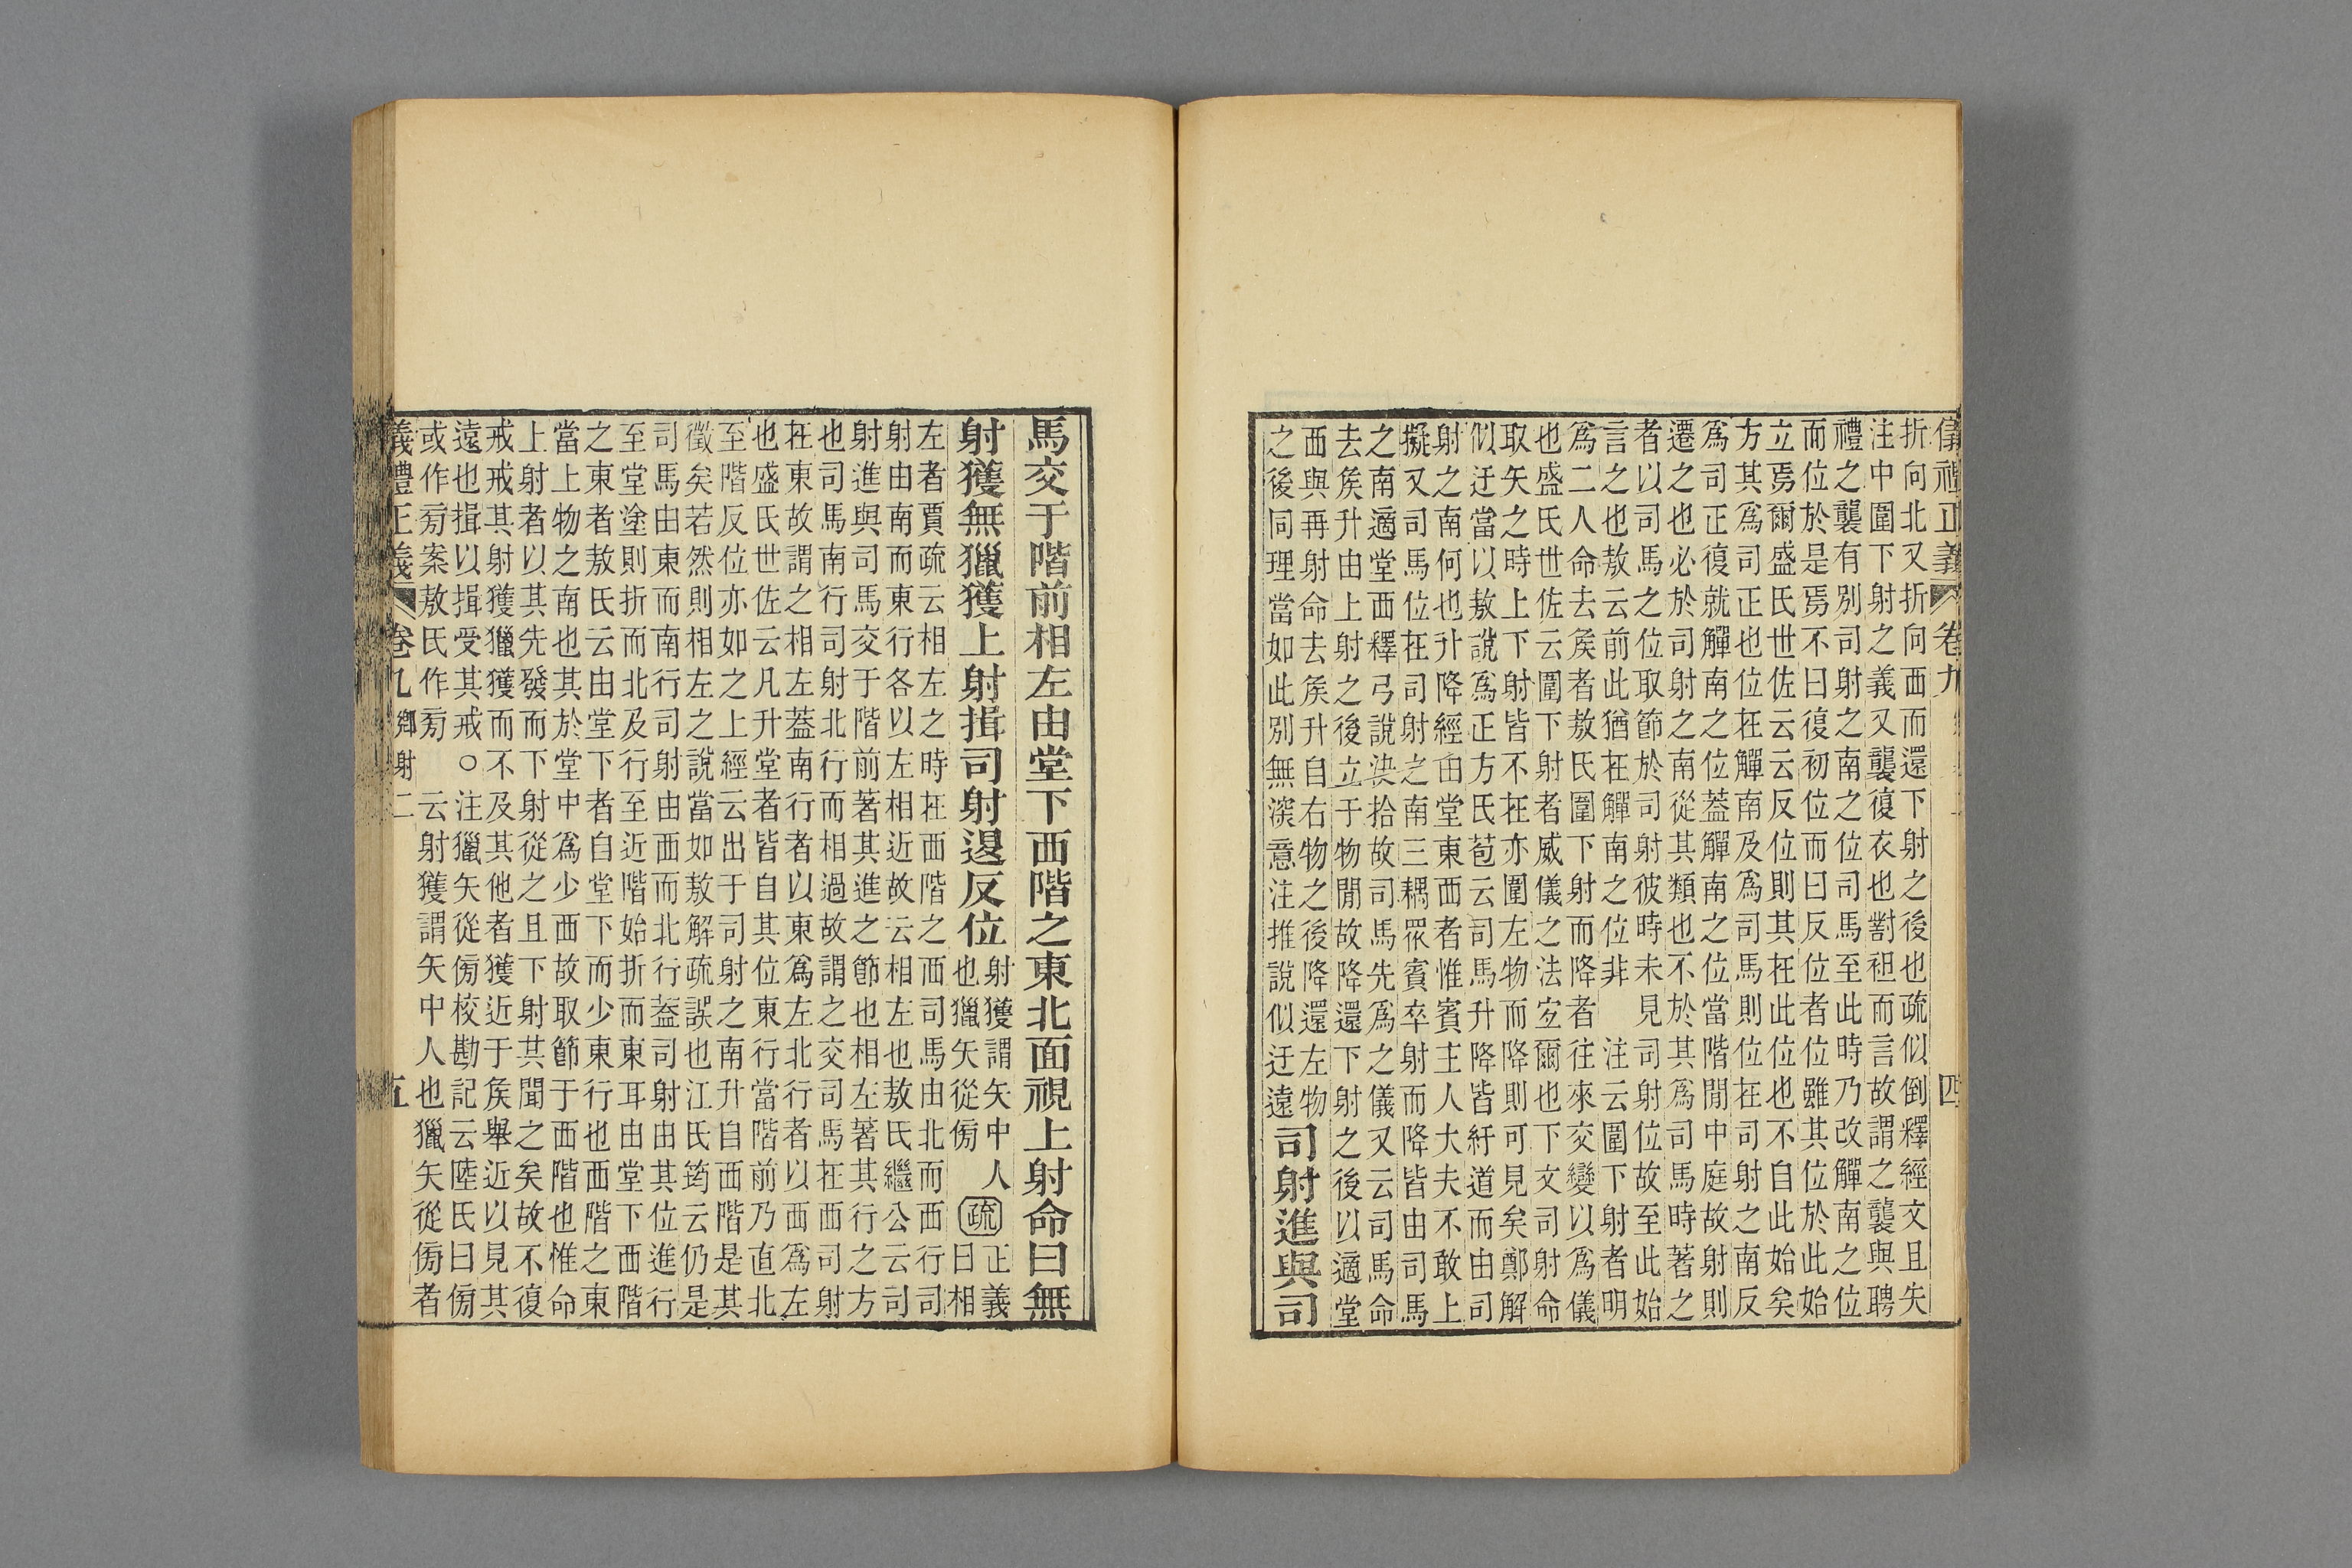 儀禮正義 卷九 四
折向北又折向西而還下射之後也疏似倒釋經文且失
注中圍下射之義又襲復衣也對袒而言故謂之襲與聘
禮之襲有別司射之南之位司馬至此時乃改觶南之位
而位於是焉不曰復初位而曰反位者位雖其位於此始
立焉爾盛氏世佐云云反位則其在此位也不自此始矣
方其為司正也位在觶南及為司馬則位在司射之南反
為司正復就觶南之位蓋觶南之位當階閒中庭故射則
遷之也必於司射之南從其類也不於其為司馬時著之
者以司馬之位取節於司射彼時未見司射位故至此始
言之也敖云前此猶在觶南之位非　注云圍下射者明
為二人命去侯者敖氏圍下射而降者往來交變以為儀
也盛氏世佐云圍下射者威儀之法宐爾也下文司射命
取矢之時上下射皆不在亦圍左物而降則可見矣鄭解
似迂當以敖說為正方氏苞云司馬升降皆紆道而由司
射之南何也升降經由堂東西者惟賓主人大夫不敢上
擬又司馬位在司射之南三耦眾賓卒射而降皆由司馬
之南適堂西釋弓說決拾故司馬先為之儀又云司馬命
去侯升由上射之後立于物閒故降還下射之後以適堂
西與再射命去侯升自右物之後降還左物
之後同理當如此別無深意注推說似迂遠司射進與司
馬交于階前相左由堂下西階之東北面視上射命曰無
射獲無獵獲上射揖司射退反位射獲謂矢中人
也獵矢從傍疏正義
曰相
左者賈疏云相左之時在西階之西司馬由北而西行司
射由南而東行各以左相近故云相左也敖氏繼公云司
射進與司馬交于階前著其進之節也相左著其行之方
也司馬南行司射北行而相過故謂之交司馬在西司射
在東故謂之相左蓋南行者以東為左北行者以西為左
也盛氏世佐云凡升堂者皆自其位東行當階前乃直北
至階反位亦如之上經云出于司射之南升自西階是其
徵矣若然則相左之說當如敖解疏誤也江氏筠云仍是
司馬由東而南行司射由西而北行蓋司射由其位進行
至堂塗則折而北及行至近階始折而東耳由堂下西階
之東者敖氏云由堂下者自堂下而少東行也西階之東
當上物之南也其於堂中為少西故取節于西階也惟命
上射者以其先發而下射從之且下射其聞之矣故不復
戒戒其射獲獵獲而不及其他者獲近于侯舉近以見其
遠也揖以揖受其戒○注獵矢從傍校勘記云陸氏曰傍
或作㫄案敖氏作㫄　云射獲謂矢中人也獵矢從傍者
義禮正義 卷九 鄉射二 五